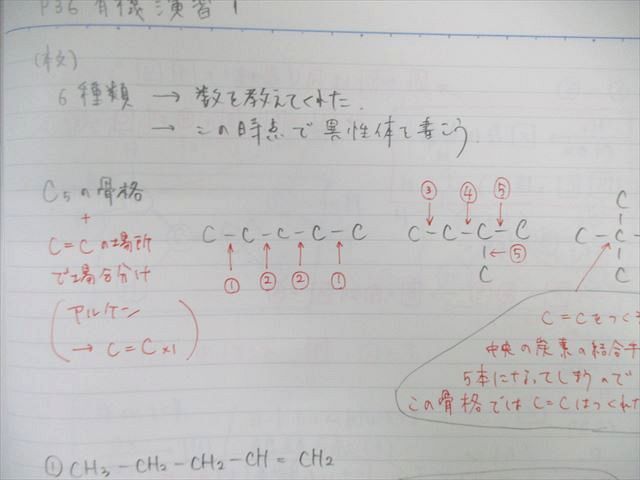 P36 有機演習1
(本文)
6種類 → 数を教えてくれた.
→ この時点で異性体を書こう.
C5の骨格
+
C=Cの場所
で場合分け
(アルケン
→ C=C×1)
C-C-C-C-C
① ② ② ①
③ ④ ⑤
C-C-C-C
←⑤
C
C
C-C-
C
C=Cをつくる
中央の炭素の結合手
5本になってしまうので
この骨格ではC=Cはつくれ
① CH3-CH2-CH2-CH=CH2